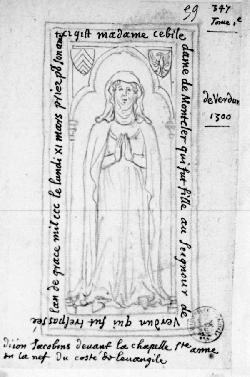 eg
347
Tome 1e
de Verdun
1300
cy gist madame cebile
dame de Montcler qui fut fille au Seignour de
Verdun qui fut trespassee
lan de grace mil ccc le lundi xi mars priez pr son ame
dijon Jacobins devant la chapelle Ste anne
en la nef du coste de levangile